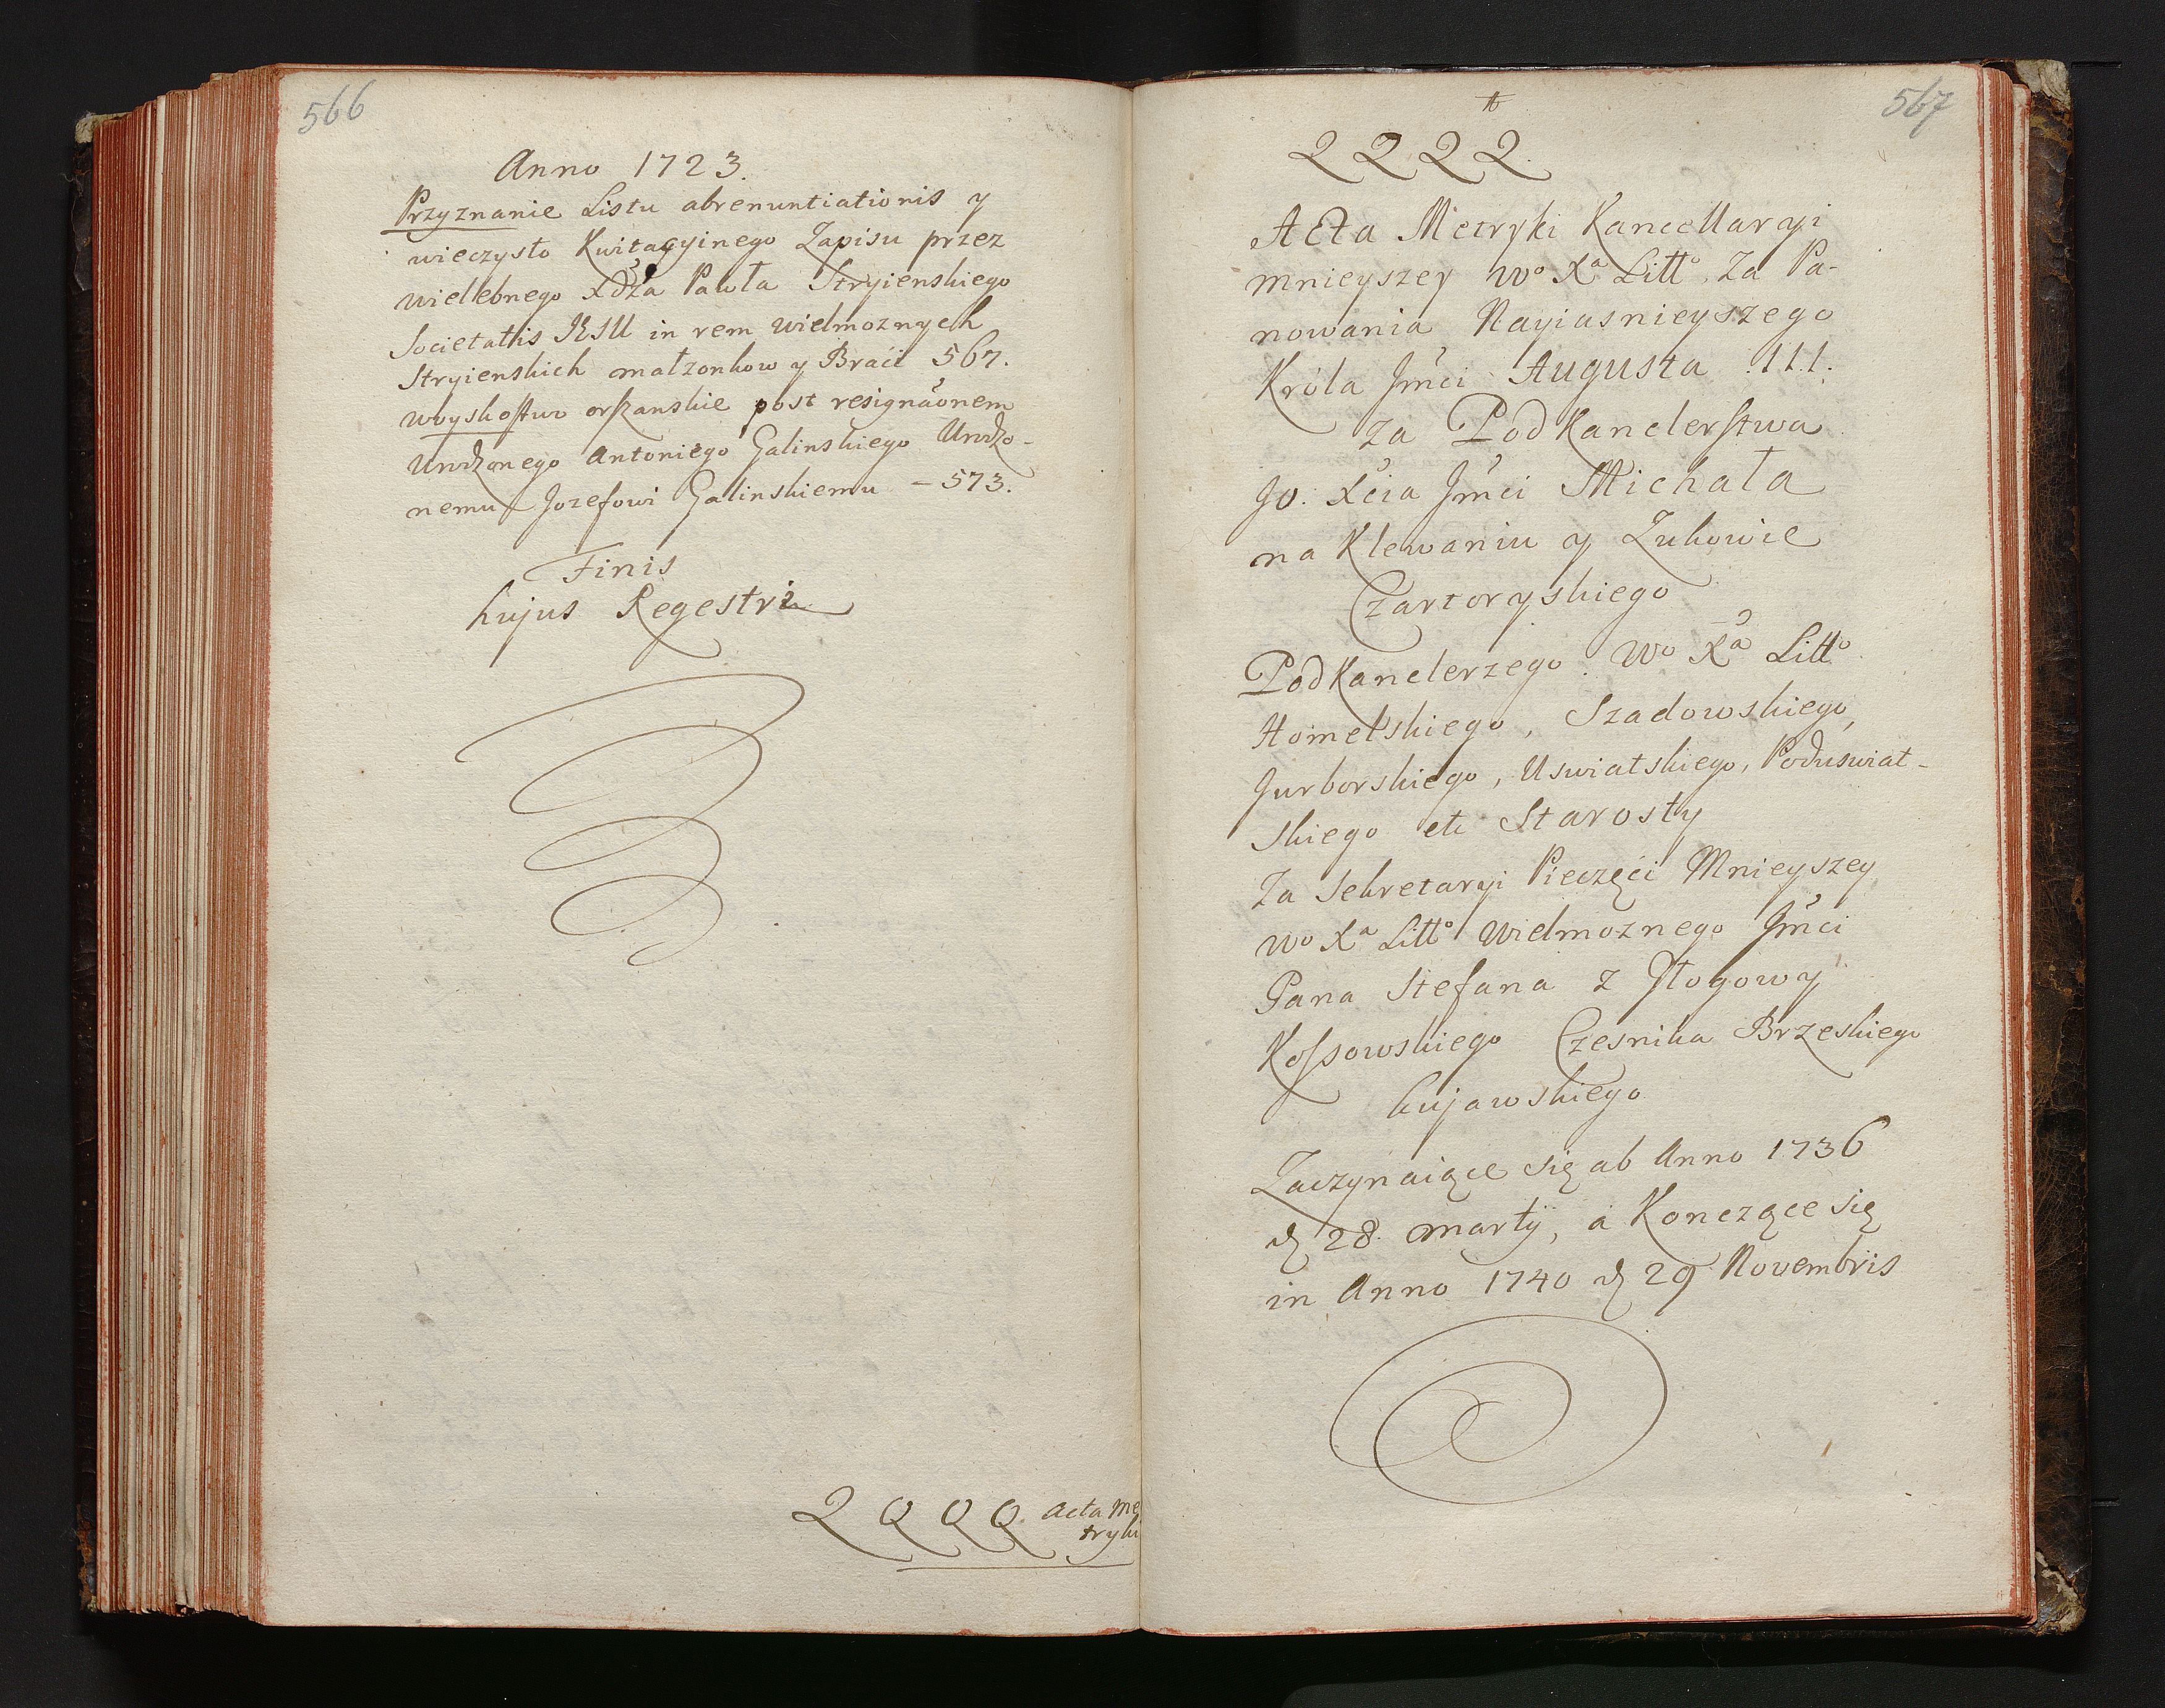 566
Anno 1723.
Przyznanie Listu abrenuntiationis y
wieczysto Kwitacyinego Zapisu przez
wielebnego Xdza Pawła Stryienskiego
Societatis IESU in rem wielmoznych
Stryienskich małzonkow y Braci 567.
Woyskostwo orszanskie post resignaonem
Urodzonego Antoniego Galinskiego Urodzo-
nemu Jozefowi Galinskiemu – 573.
Finis
hujus Regestri
QQQQ. Acta Me
tryki
567
QQQQ.
Acta Metryki Kancellaryi
mnieyszey Wo Xa Litto Za Pa-
nowania Nayiasnieyszego
Króla Jmci Augusta III.
Za PodKanclerstwa
Jo. Xcia Jmci Michała
na Klewaniu y Zukowie
Czartoryskiego
PodKanclerzego Wo Xa Litto
Homelskiego, Szadowskiego,
Jurborskiego, Uswiatskiego, Poduswiat-
skiego etc Starosty
Za Sekretaryi Pieczęci Mnieyszey
Wo Xa Litto Wielmoznego Jmci
Pana Stefana z Głogowy
Kossowskiego Czesnika Brzeskiego
kujawskiego
Zaczynaiące się ab Anno 1736
d 28. martij, a Konczące się
in Anno 1740 d 29 Novembris